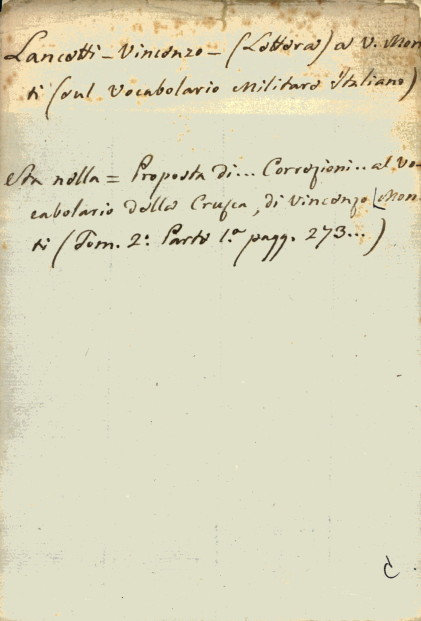 Lancetti – Vincenzo – (Lettera) a V. Mon
ti (sul Vocabolario Militare Italiano)
Sta nella = Proposta di... Correzioni.. al Vo-
cabolario della Crusca, di Vincenzo Mon-
ti (Tom. 2.° Parte 1.ª pagg. 273...)
C.